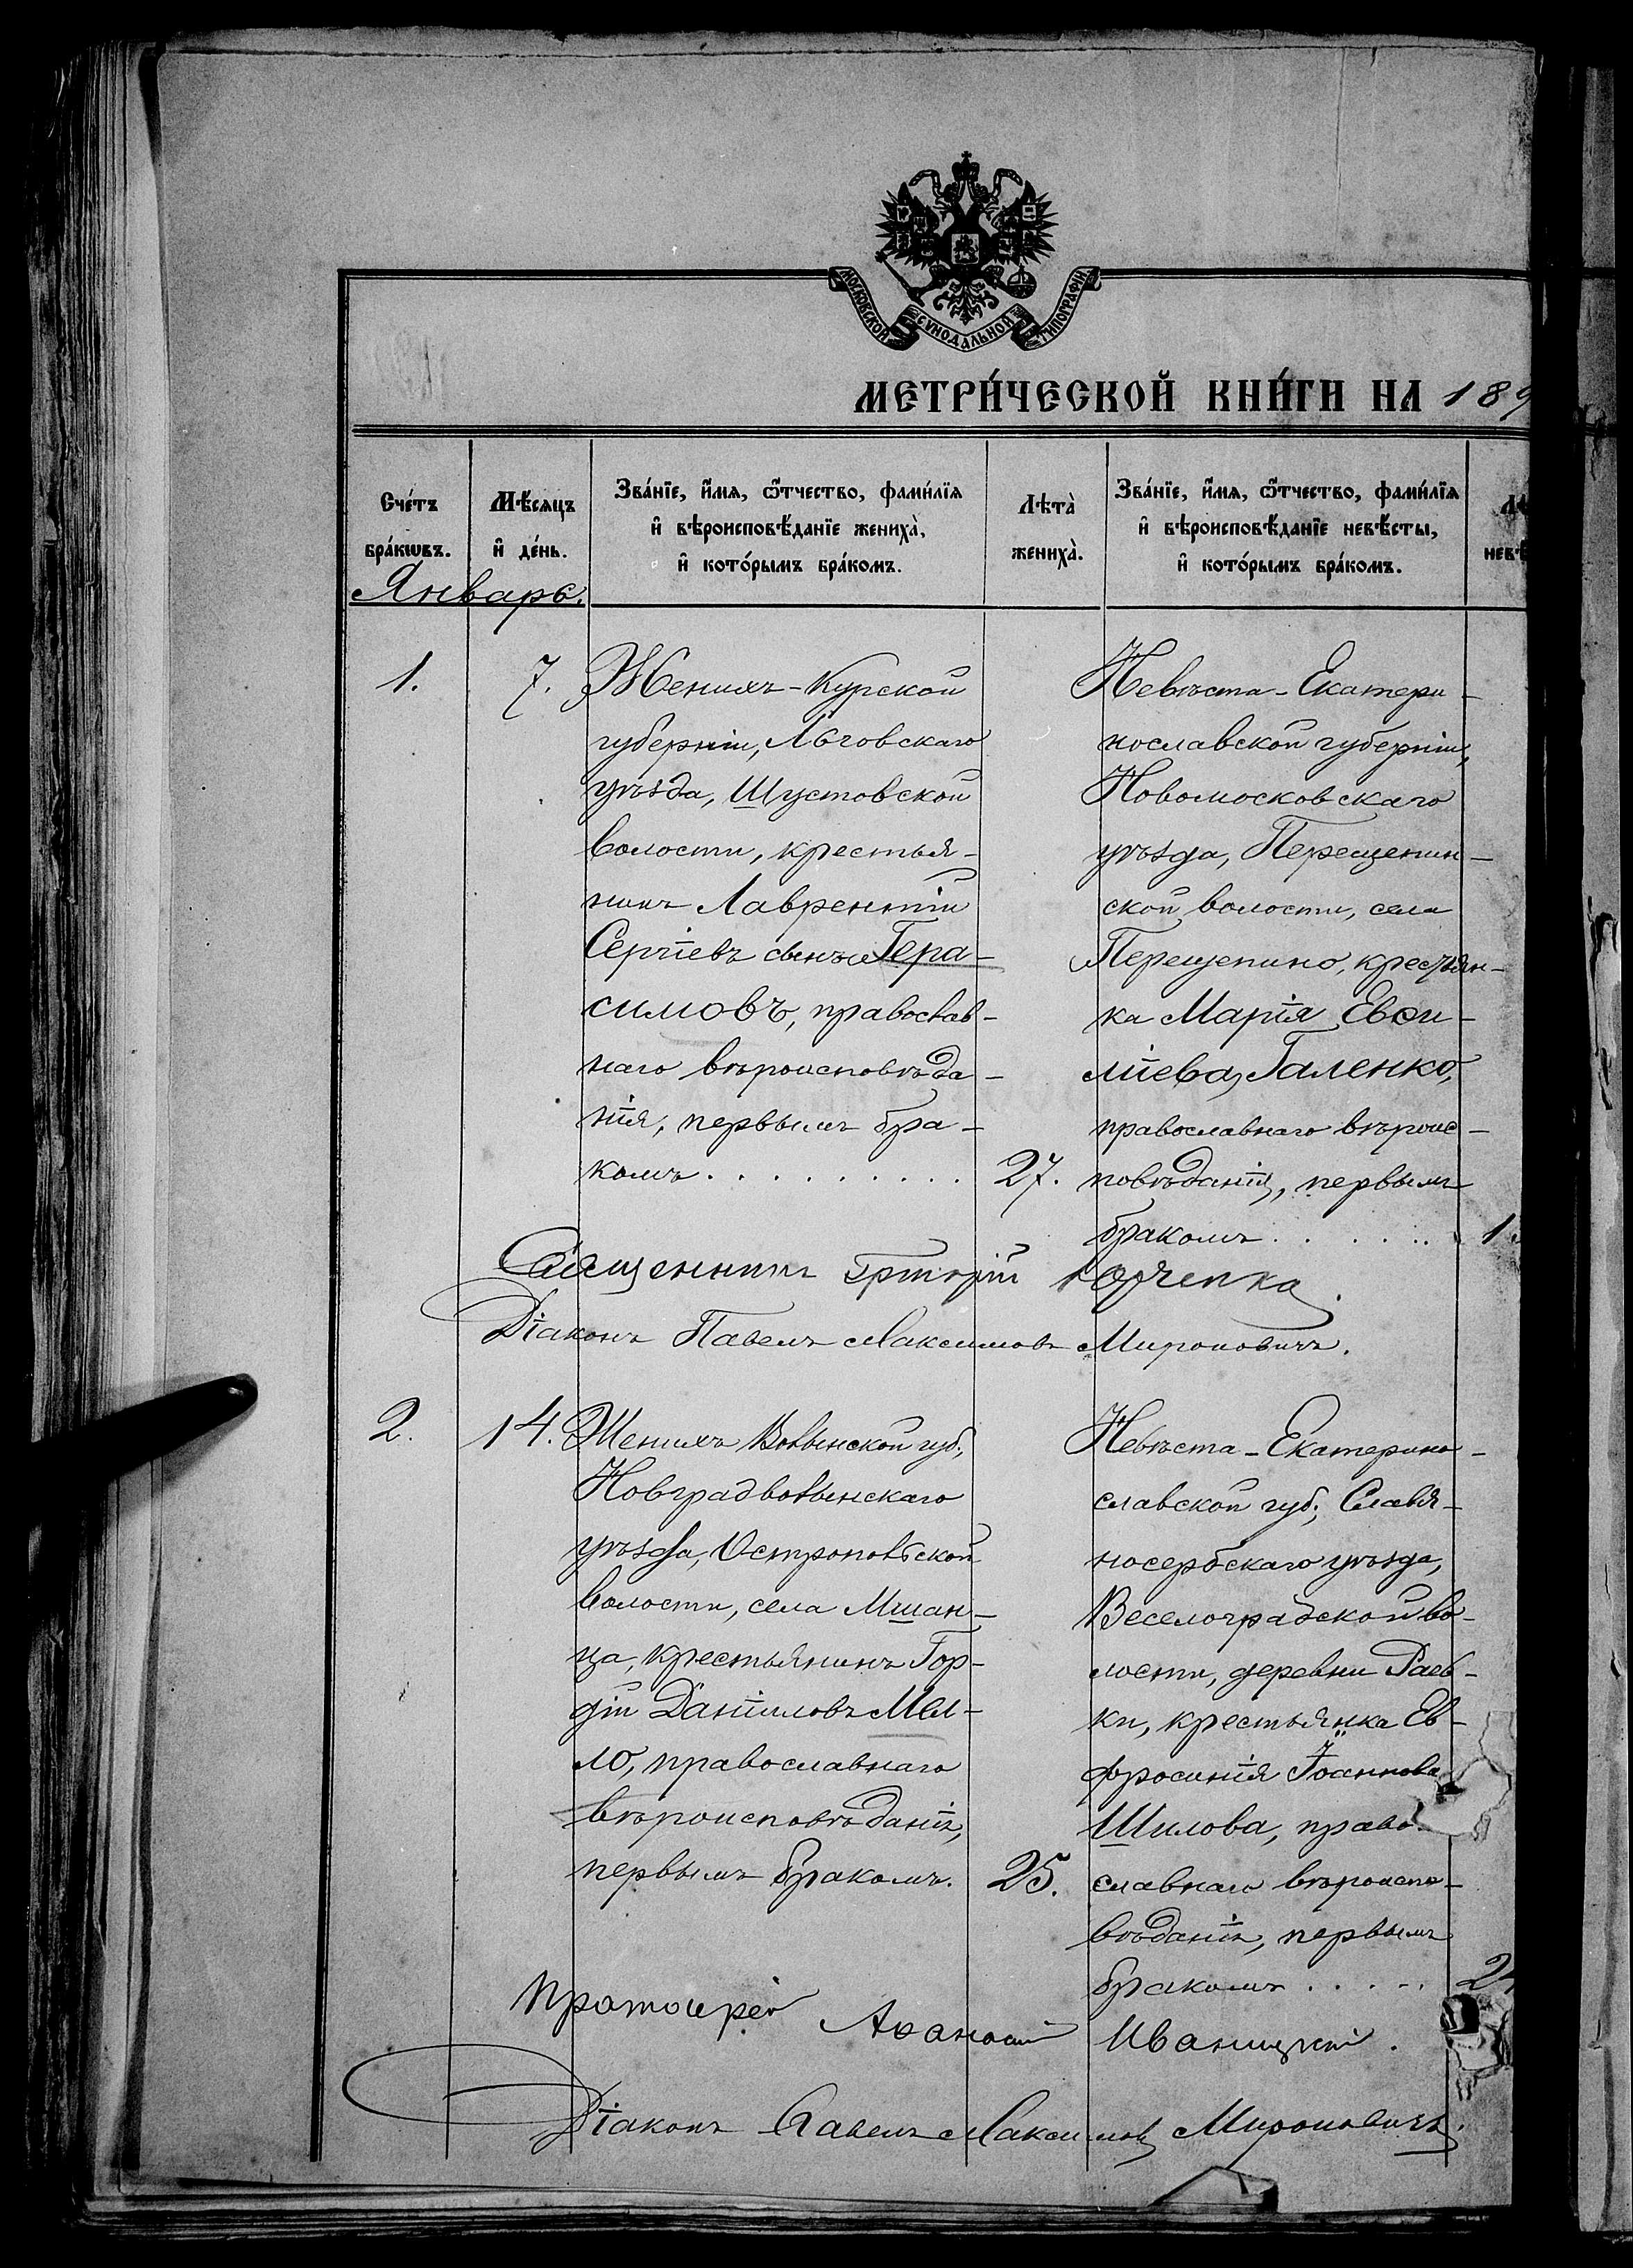 МОСКОВСКОЙ СѴНОДАЛЬНОЙ ТИПОГРАФІИ
МЕТРИ́ЧЕСКОЙ КНИ́ГИ НА 189
Сче́тъ бра́кѡвъ.
Мѣ́сяцъ и҆ де́нь.
Зва́нїе, и҆́мя, ѻ҆́тчество, фами́лїя
и҆ вѣроисповѣ́данїе жениха̀,
и҆ кото́рымъ бра́комъ.
Лѣта̀ жениха̀.
Зва́нїе, и҆́мя, ѻ҆́тчество, фами́лїя
и҆ вѣроисповѣ́данїе невѣ́сты,
и҆ кото́рымъ бра́комъ.
Январь.
1.
7.
Женихъ-Курской
губерніи, Льговскаго
уѣзда, Шустовской
волости, крестья-
нинъ Лаврентій
Сергіевъ сынъ Гера-
симовъ, православ-
наго вѣроисповѣда-
нія, первымъ бра-
комъ . . . . . . . . .
27.
Невѣста-Екатери-
нославской губерніи,
Новомосковскаго
уѣзда, Перещепин-
ской волости, села
Перещепино, крестьян-
ка Марія Евѳи-
міева Галенко,
православнаго вѣроис-
повѣданія, первымъ
бракомъ . . . . . . .
1
Священникъ Григорій Юрченка.
Діаконъ Павелъ Максимовъ Мироновичъ.
2.
14.
Женихъ Волынской губ.,
Новградволынскаго
уѣзда, Остропольской
волости, села Мшан-
ца, крестьянинъ Гор-
дій Даніиловъ Мел-
ло, православнаго
вѣроисповѣданія,
первымъ бракомъ.
25.
Невѣста-Екатерино-
славской губ., Славя-
носербскаго уѣзда,
Веселоградской во-
лости, деревни Раев-
ки, крестьянка Ев-
фросинія Іоаннова
Шилова, право-
славнаго вѣроиспо-
вѣданія, первымъ
бракомъ . . . . .
2
Протоіерей Аѳанасій Иваницкій.
Діаконъ Павелъ Максимовъ Мироновичъ.